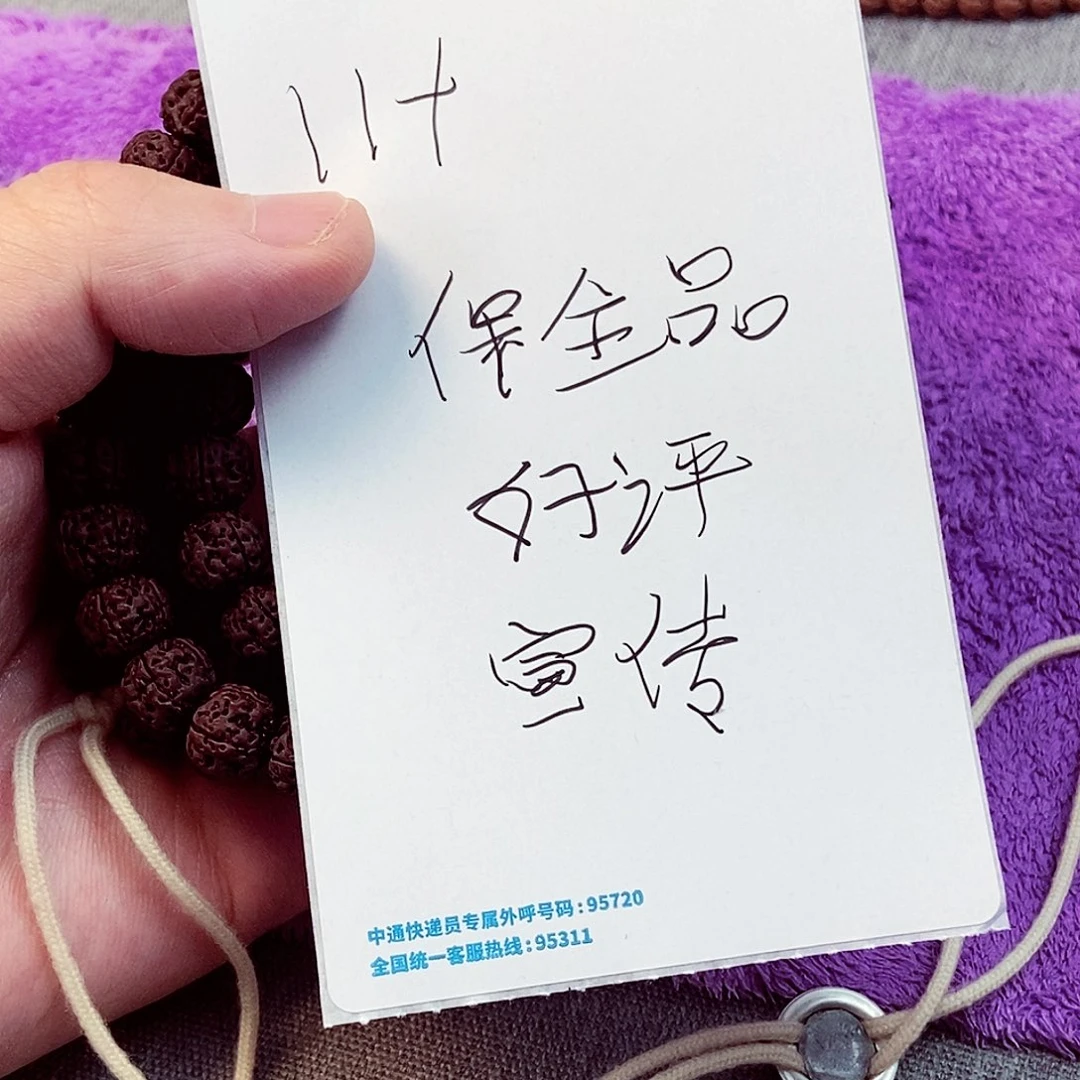 11十
保全品
好评
宣传
中通快递员专属外呼号码:95720
全国统一客服热线:95311